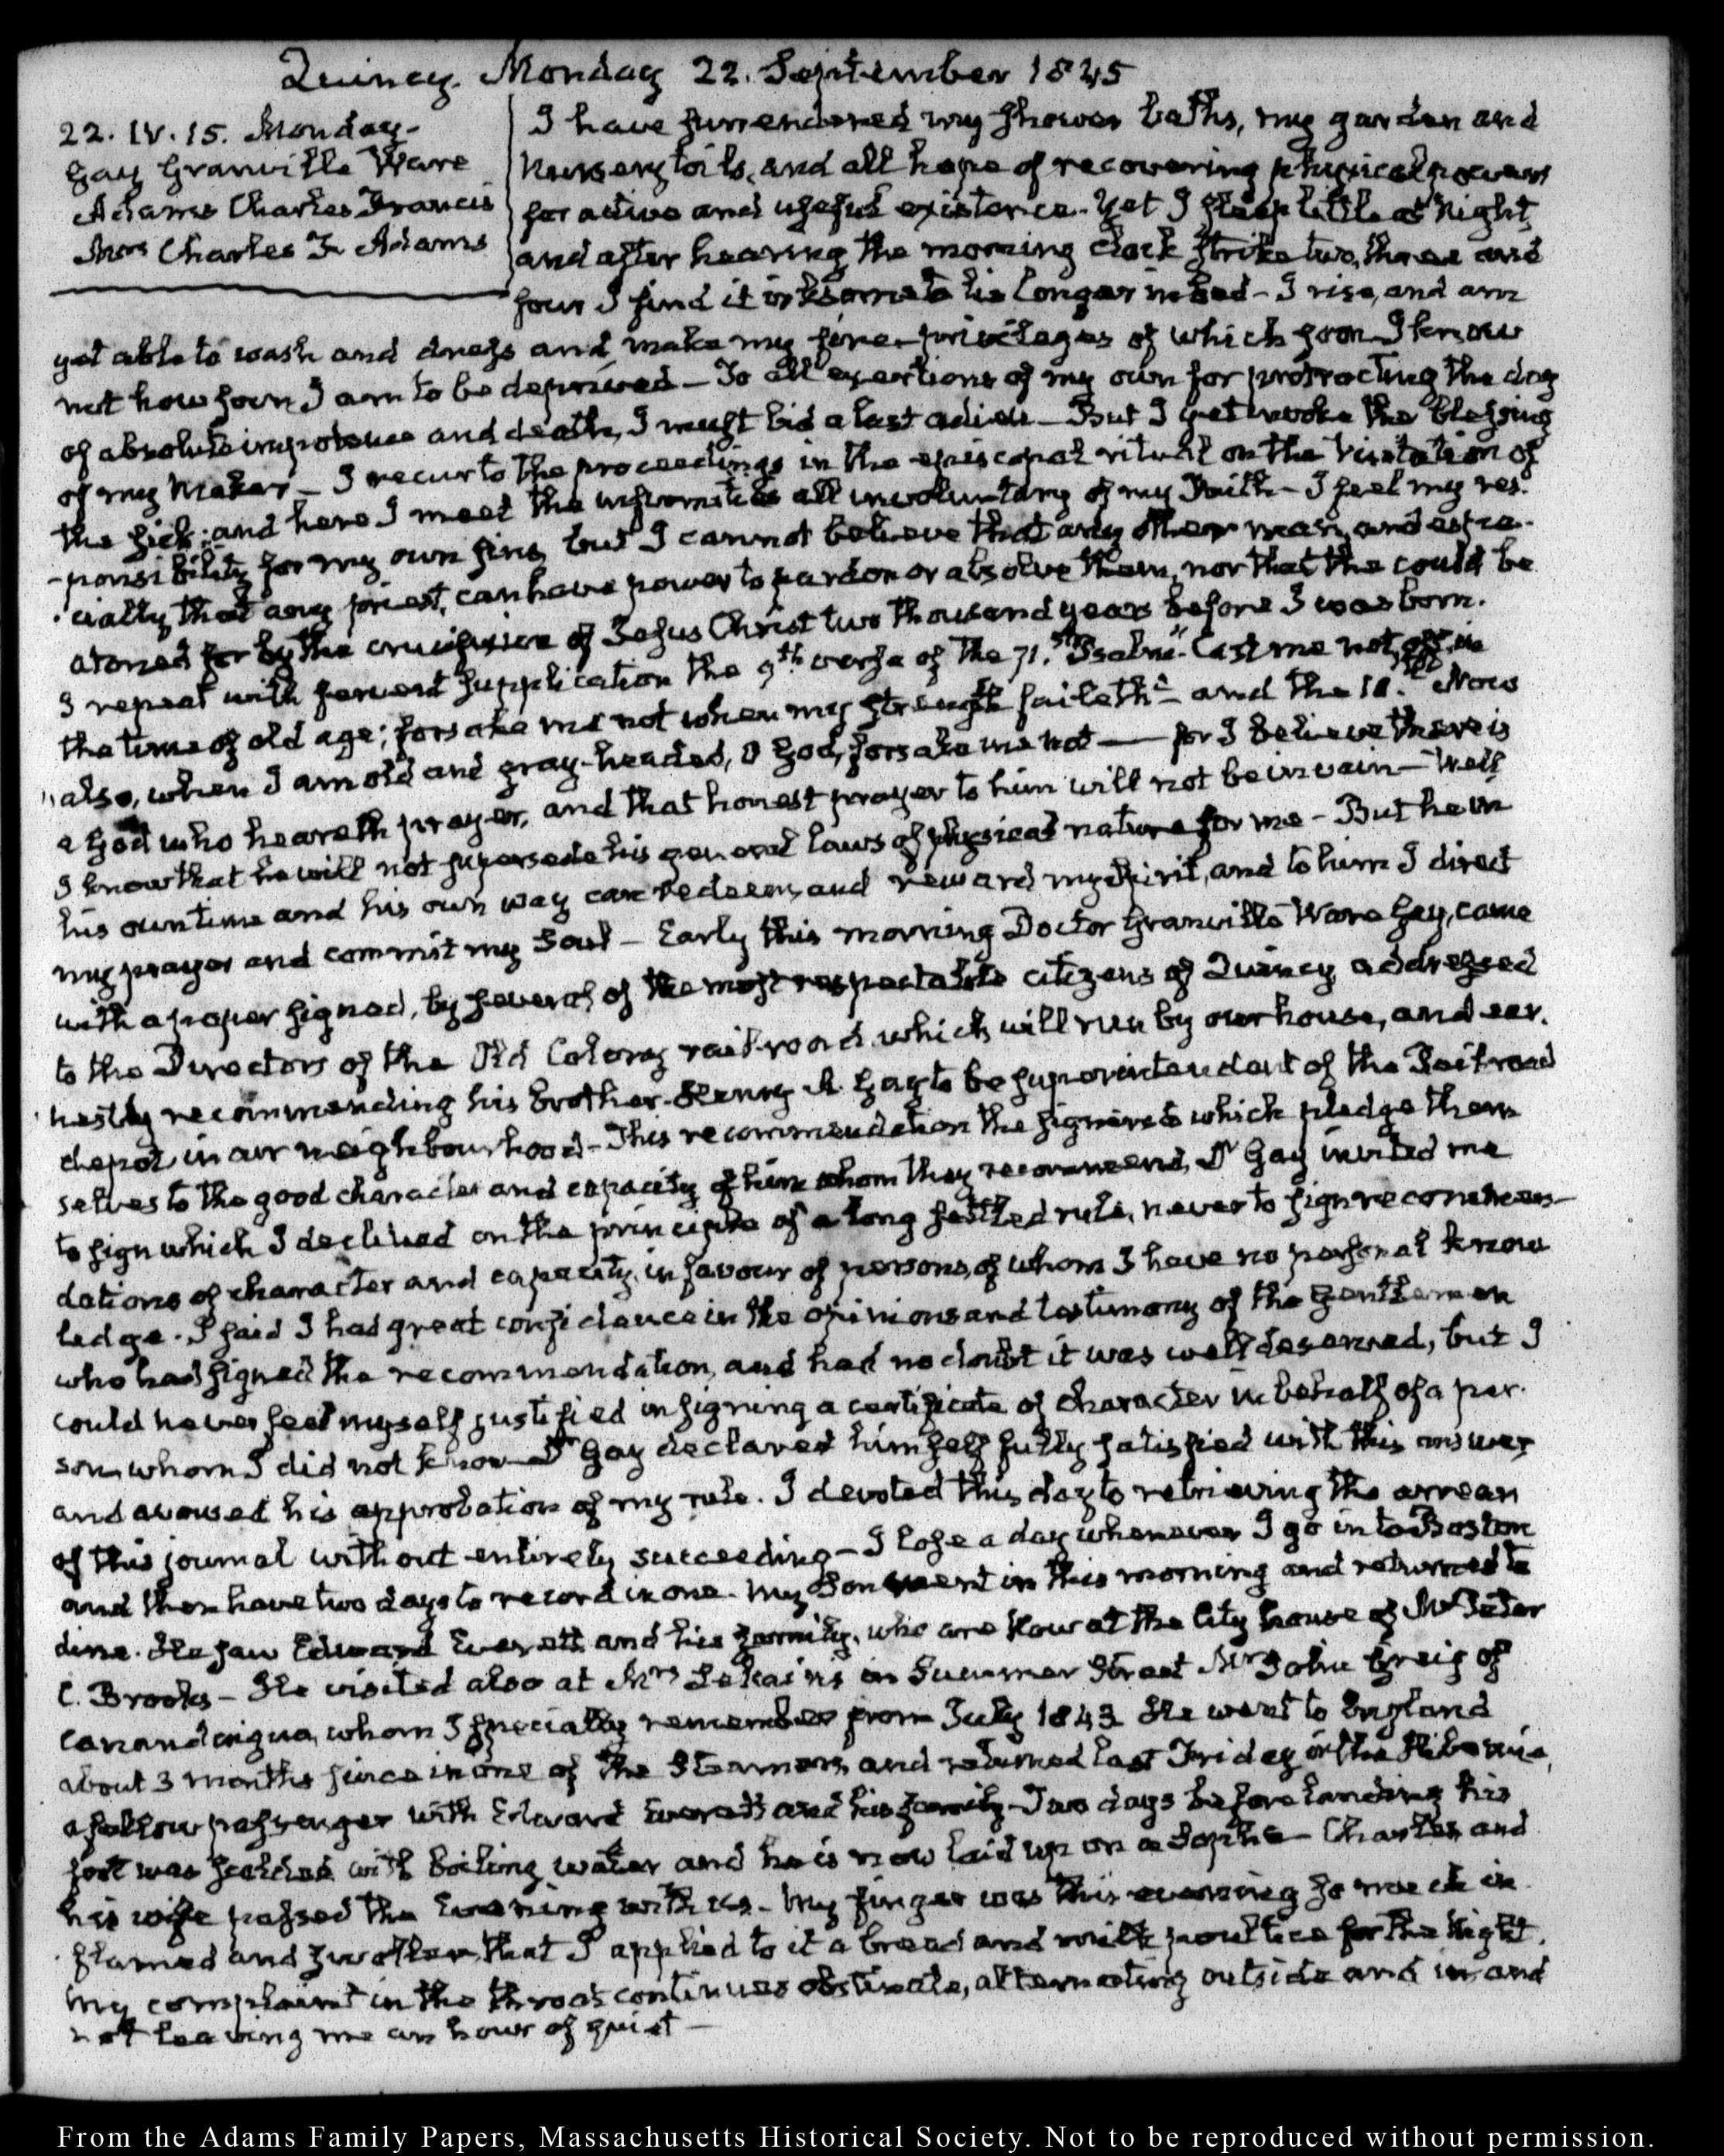 Quincy. Monday 22. September 1845
22. IV. 15. Monday-
Gay Granville Ware
Adams Charles Francis
Mrs Charles F. Adams
I have surrendered my shower baths, my garden and
nursery toils, and all hope of recovering physical powers
for active and useful existence. Yet I sleep little at Night,
and after hearing the morning clock strike two, three and
four I find it irksome to lie longer in bed - I rise, and am
yet able to wash and dress and make my fire - privileges of which soon I know
not how soon I am to be deprived - To all exertions of my own for protracting the day
of absolute impotence and death, I must bid a last adieu - But I yet invoke the blessing
of my Maker - I recur to the proceedings in the episcopal ritual on the Visitation of
the sick; and here I meet the infirmities all involuntary of my Faith - I feel my res-
-ponsibility for my own sins, but I cannot believe that any other man, and espe-
cially that any priest, can have power to pardon or absolve them, nor that the could be
atoned for by the crucifixion of Jesus Christ two thousand years before I was born.
I repeat with fervent supplication the 9th verse of the 71.st Psalm "Cast me not off in
the time of old age; forsake me not when my strength faileth" - and the 18.th Now
"also, when I am old and gray-headed, O God, forsake me not — for I believe there is
a God who heareth prayer, and that honest prayer to him will not be in vain — Well
I know that he will not supersede his general laws of physical nature for me - But he in
his own time and his own way can redeem, and reward my Spirit, and to him I direct
my prayer and commit my Soul - Early this morning Doctor Granville Ware Gay, came
with a paper signed, by several of the most respectable citizens of Quincy addressed
to the Directors of the Old Colony rail-road which will run by our house, and ear-
nestly recommending his brother Henry Gay to be superintendent of the Railroad
depot in our neighbourhood - This recommendation the signers to which pledge them
selves to the good character and capacity of him whom they recommend, Dr Gay invited me
to sign which I declined on the principle of a long settled rule, never to sign recommen-
dations of character and capacity, in favour of persons, of whom I have no personal know
ledge. I said I had great confidence in the opinions and testimony of the Gentlemen
who had signed the recommendation, and had no doubt it was well deserved, but I
could never feel myself justified in signing a certificate of character in behalf of a per-
son whom I did not know - Dr Gay declared himself fully satisfied with this answer
and avowed his approbation of my rule. I devoted this day to retrieving the arrear
of this journal without entirely succeeding - I lose a day whenever I go into Boston
and then have two days to record in one. My Son went in this morning and returned to
dine. He saw Edward Everett and his family, who are now at the City house of Mr Peter
C. Brooks - He visited also at Mrs in Summer Street Mr John Greig of
Canandaigua, whom I specially remember from July 1843 He went to England
about 3 months since in one of the Steamers, and returned last Friday in the Hibernia,
a fellow passenger with Edward Everett and his family - Two days before landing his
foot was scalded with boiling water and he is now laid up on a Sopha - Charles and
his wife passed the Evening with us - My finger was this evening so much in
flamed and swollen, that I applied to it a bread and milk poultice for the Night.
My complaint in the throat continues obstinate, alternating outside and in, and
not leaving me an hour of quiet -
From the Adams Family Papers, Massachusetts Historical Society. Not to be reproduced without permission.